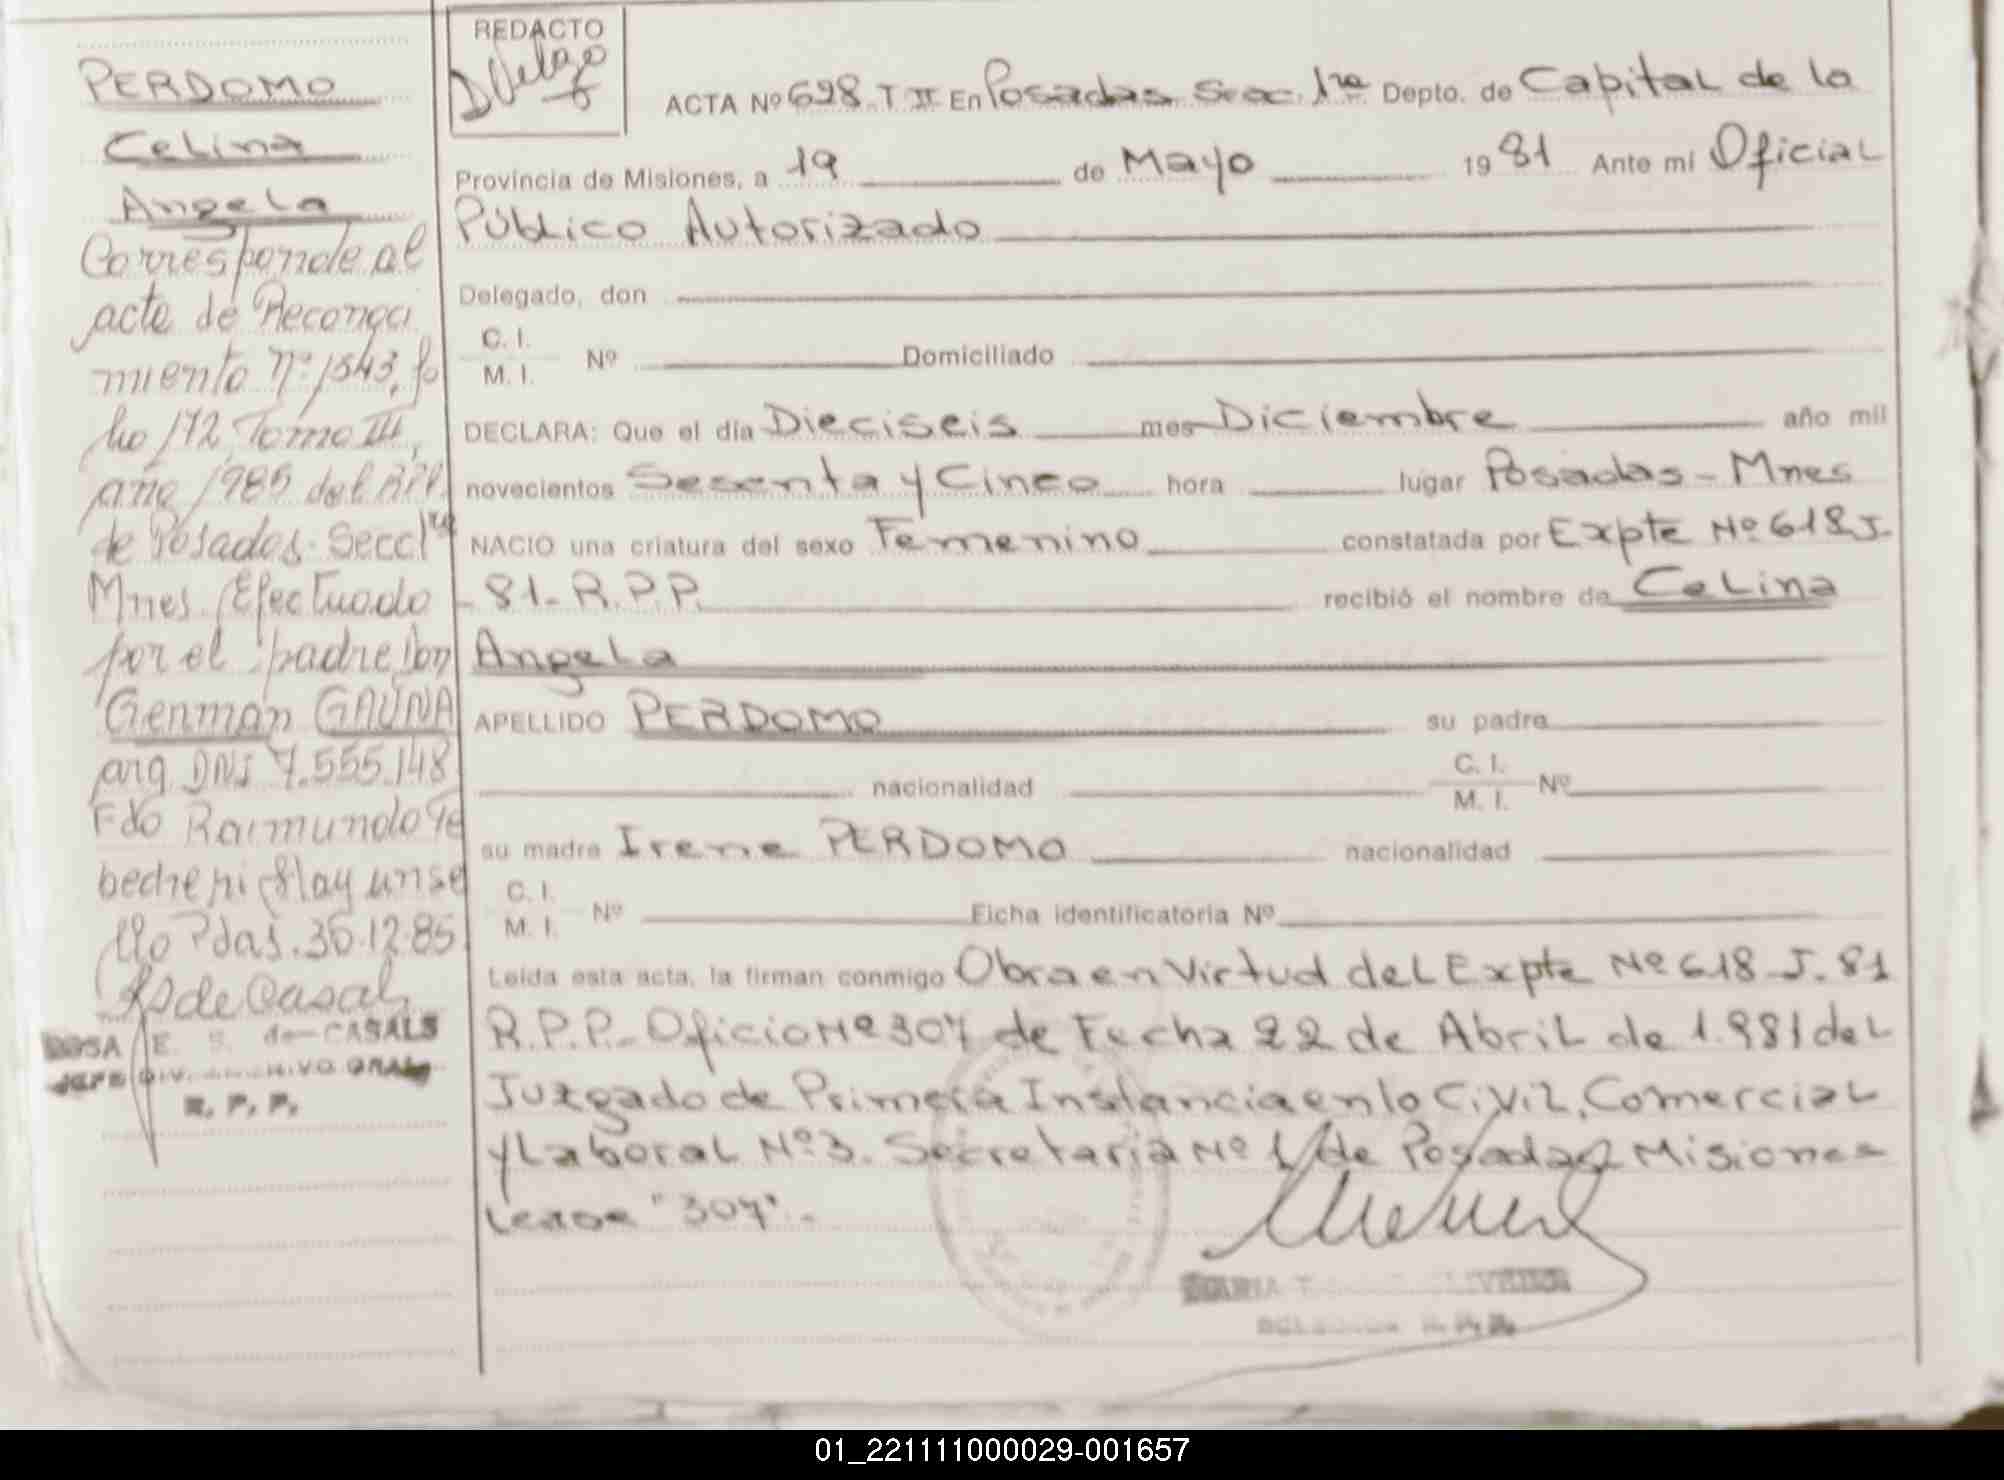 PERDOMO
Celina
Angela
Corresponde al
acta de Reconoci
miento Nº 1543, fo
lio 172, Tomo III,
año 1985 del RPP.
de Posadas. Secc 1ra
Mnes. Efectuado
por el padre Don
Genman GAUNA
arg. DNI 7.555.148
Fdo Raimundo Te
hay un se
llo Pdas. 30.12.85
RS de Casals
ROSA E. S. de CASALS
JEFE DIV. ARCHIVO GRAL.
R. P. P.
REDACTO
ACTA Nº 698 T II En Posadas Secc. 1ra Depto. de Capital de la
Provincia de Misiones, a 19 de Mayo 1981 Ante mi Oficial
Público Autorizado
Delegado, don
C. I.
M. I. Nº Domiciliado
DECLARA: Que el día Dieciseis mes Diciembre año mil
novecientos Sesenta y Cinco hora lugar Posadas - Mnes
NACIO una criatura del sexo Femenino constatada por Expte Nº 618 J.
- 81 - R.P.P. recibió el nombre de Celina
Angela
APELLIDO PERDOMO su padre
nacionalidad C. I.
M. I. Nº
su madre Irene PERDOMO nacionalidad
C. I.
M. I. Nº Ficha identificatoria Nº
Leída esta acta, la firman conmigo Obra en Virtud del Expte Nº 618 J. 81
R.P.P.- Oficio Nº 307 de Fecha 22 de Abril de 1.981 del
Juzgado de Primera Instancia en lo Civil, Comercial
y Laboral Nº 3. Secretaria Nº 1 de Posadas Misiones
Lease "307".
MARIA T.
R. P. P.
01_221111000029-001657